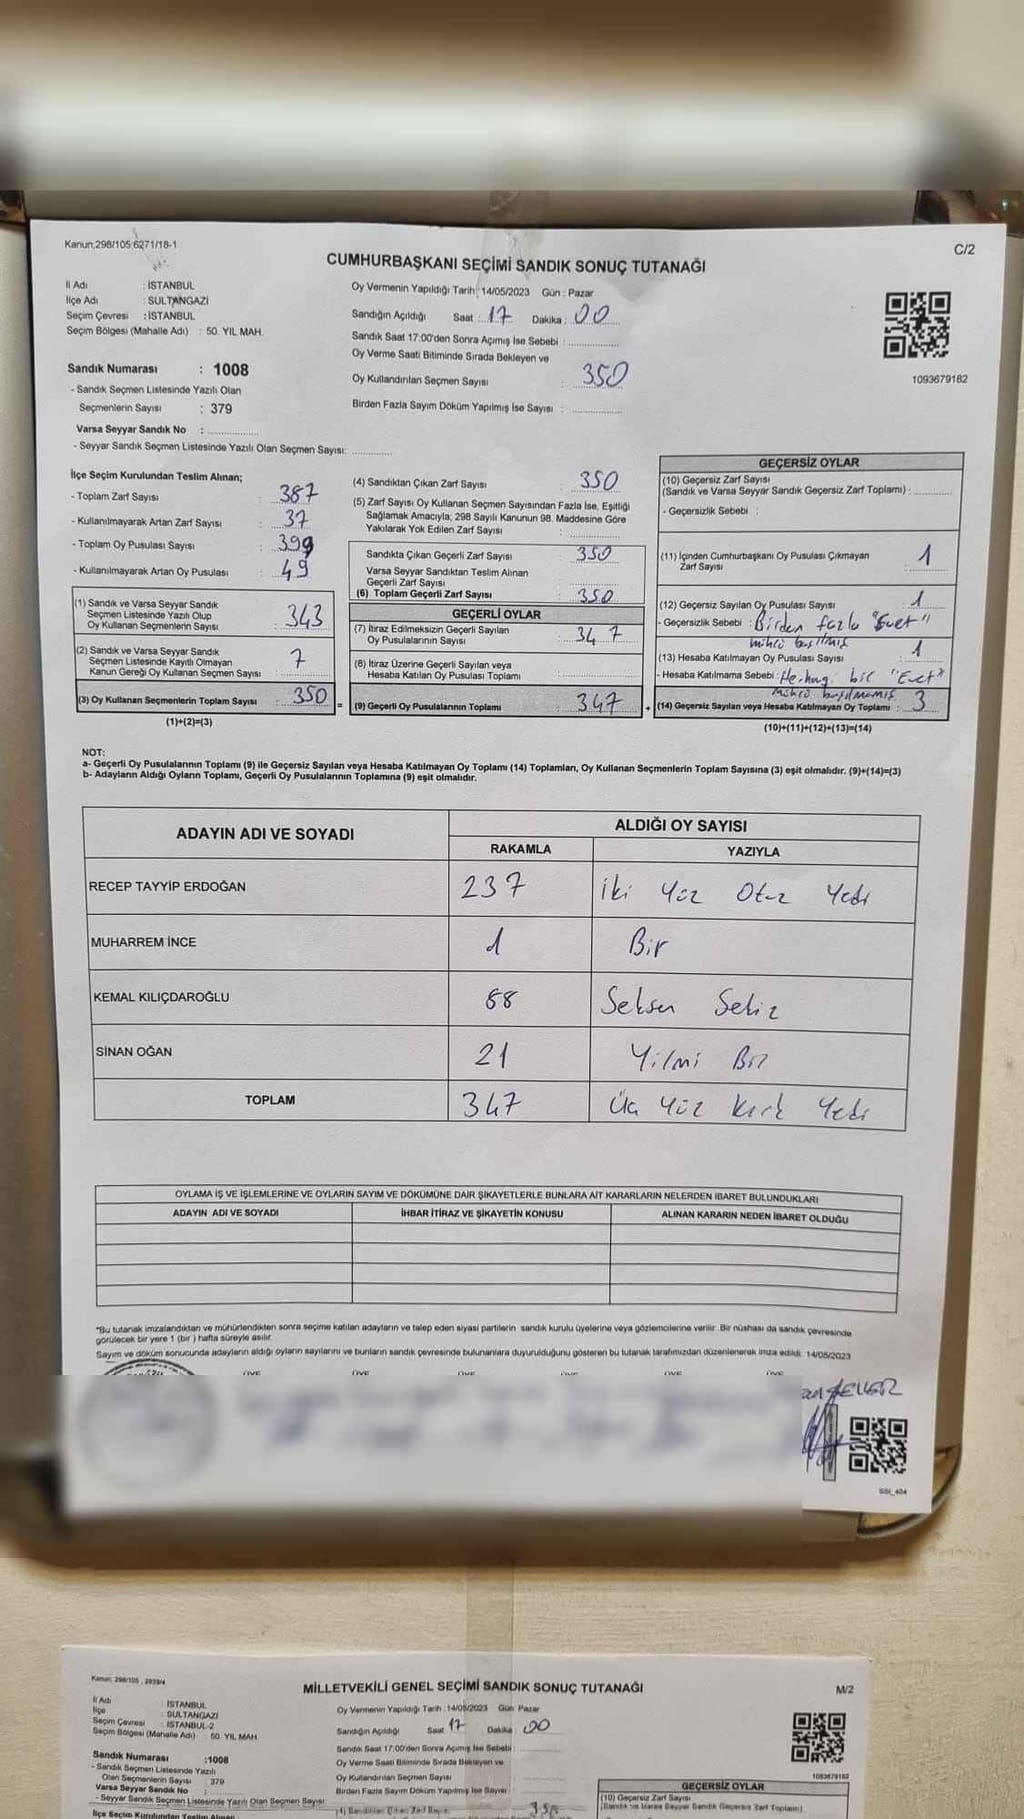 Kanun;298/105;6271/18-1
C/2
CUMHURBAŞKANI SEÇİMİ SANDIK SONUÇ TUTANAĞI
İl Adı : İSTANBUL
İlçe Adı : SULTANGAZİ
Seçim Çevresi : İSTANBUL
Seçim Bölgesi (Mahalle Adı) : 50. YIL MAH.
Sandık Numarası : 1008
- Sandık Seçmen Listesinde Yazılı Olan
Seçmenlerin Sayısı : 379
Varsa Seyyar Sandık No :
- Seyyar Sandık Seçmen Listesinde Yazılı Olan Seçmen Sayısı:
Oy Vermenin Yapıldığı Tarih: 14/05/2023 Gün : Pazar
Sandığın Açıldığı Saat : 17 Dakika : 00
Sandık Saat 17:00'den Sonra Açımış İse Sebebi :
Oy Verme Saati Bitiminde Sırada Bekleyen ve
Oy Kullandırılan Seçmen Sayısı : 350
Birden Fazla Sayım Döküm Yapılmış İse Sayısı :
1093679182
İlçe Seçim Kurulundan Teslim Alınan;
- Toplam Zarf Sayısı : 387
- Kullanılmayarak Artan Zarf Sayısı : 37
- Toplam Oy Pusulası Sayısı : 399
- Kullanılmayarak Artan Oy Pusulası : 49
(1) Sandık ve Varsa Seyyar Sandık
Seçmen Listesinde Yazılı Olup
Oy Kullanan Seçmenlerin Sayısı : 343
(2) Sandık ve Varsa Seyyar Sandık
Seçmen Listesinde Kayıtlı Olmayan
Kanun Gereği Oy Kullanan Seçmen Sayısı : 7
(3) Oy Kullanan Seçmenlerin Toplam Sayısı : 350
(1)+(2)=(3)
(4) Sandıktan Çıkan Zarf Sayısı : 350
(5) Zarf Sayısı Oy Kullanan Seçmen Sayısından Fazla İse, Eşitliği
Sağlamak Amacıyla; 298 Sayılı Kanunun 98. Maddesine Göre
Yakılarak Yok Edilen Zarf Sayısı :
Sandıkta Çıkan Geçerli Zarf Sayısı : 350
Varsa Seyyar Sandıktan Teslim Alınan
Geçerli Zarf Sayısı :
(6) Toplam Geçerli Zarf Sayısı : 350
GEÇERLİ OYLAR
(7) İtiraz Edilmeksizin Geçerli Sayılan
Oy Pusulalarının Sayısı : 347
(8) İtiraz Üzerine Geçerli Sayılan veya
Hesaba Katılan Oy Pusulası Toplamı :
= (9) Geçerli Oy Pusulalarının Toplamı : 347
GEÇERSİZ OYLAR
(10) Geçersiz Zarf Sayısı
(Sandık ve Varsa Seyyar Sandık Geçersiz Zarf Toplamı) :
- Geçersizlik Sebebi :
(11) İçinden Cumhurbaşkanı Oy Pusulası Çıkmayan
Zarf Sayısı : 1
(12) Geçersiz Sayılan Oy Pusulası Sayısı : 1
- Geçersizlik Sebebi : Birden fazla "Evet"
mührü basılmış
(13) Hesaba Katılmayan Oy Pusulası Sayısı : 1
- Hesaba Katılmama Sebebi : Herhangi bir "Evet"
mührü basılmamış
+ (14) Geçersiz Sayılan veya Hesaba Katılmayan Oy Toplamı : 3
(10)+(11)+(12)+(13)=(14)
NOT:
a- Geçerli Oy Pusulalarının Toplamı (9) ile Geçersiz Sayılan veya Hesaba Katılmayan Oy Toplamı (14) Toplamları, Oy Kullanan Seçmenlerin Toplam Sayısına (3) eşit olmalıdır. (9)+(14)=(3)
b- Adayların Aldığı Oyların Toplamı, Geçerli Oy Pusulalarının Toplamına (9) eşit olmalıdır.
ADAYIN ADI VE SOYADI ALDIĞI OY SAYISI
RAKAMLA YAZIYLA
RECEP TAYYİP ERDOĞAN 237 İki Yüz Otuz Yedi
MUHARREM İNCE 1 Bir
KEMAL KILIÇDAROĞLU 88 Seksen Sekiz
SİNAN OĞAN 21 Yirmi Bir
TOPLAM 347 Üç Yüz Kırk Yedi
OYLAMA İŞ VE İŞLEMLERİNE VE OYLARIN SAYIM VE DÖKÜMÜNE DAİR ŞİKAYETLERLE BUNLARA AİT KARARLARIN NELERDEN İBARET BULUNDUKLARI
ADAYIN ADI VE SOYADI İHBAR İTİRAZ VE ŞİKAYETİN KONUSU ALINAN KARARIN NEDEN İBARET OLDUĞU
*Bu tutanak imzalandıktan ve mühürlendikten sonra seçime katılan adayların ve talep eden siyasi partilerin sandık kurulu üyelerine veya gözlemcilerine verilir. Bir nüshası da sandık çevresinde
görülecek bir yere 1 (bir) hafta süreyle asılır.
Sayım ve döküm sonucunda adayların aldığı oyların sayılarını ve bunların sandık çevresinde bulunanlara duyurulduğunu gösteren bu tutanak tarafımızdan düzenlenerek imza edildi. 14/05/2023
ÜYE ÜYE ÜYE ÜYE ÜYE ÜYE
SSI_404
Kanun: 298/105 , 2839/4
M/2
MİLLETVEKİLİ GENEL SEÇİMİ SANDIK SONUÇ TUTANAĞI
İl Adı : İSTANBUL
İlçe : SULTANGAZİ
Seçim Çevresi : İSTANBUL-2
Seçim Bölgesi (Mahalle Adı) : 50. YIL MAH.
Sandık Numarası :1008
- Sandık Seçmen Listesinde Yazılı
Olan Seçmenlerin Sayısı : 379
Varsa Seyyar Sandık No :
- Seyyar Sandık Seçmen Listesinde Yazılı Olan Seçmen Sayısı:
İlçe Seçim Kurulundan Teslim Alınan
Oy Vermenin Yapıldığı Tarih :14/05/2023 Gün: Pazar
Sandığın Açıldığı Saat 17 Dakika : 00
Sandık Saat 17:00'den Sonra Açımış İse Sebebi :
Oy Verme Saati Bitiminde Sırada Bekleyen ve
Oy Kullandırılan Seçmen Sayısı :
Birden Fazla Sayım Döküm Yapılmış İse Sayısı :
(4) Sandıktan Çıkan Zarf Sayısı : 350
1083679182
GEÇERSİZ OYLAR
(10) Geçersiz Zarf Sayısı
(Sandık ve Varsa Seyyar Sandık Geçersiz Zarf Toplamı)